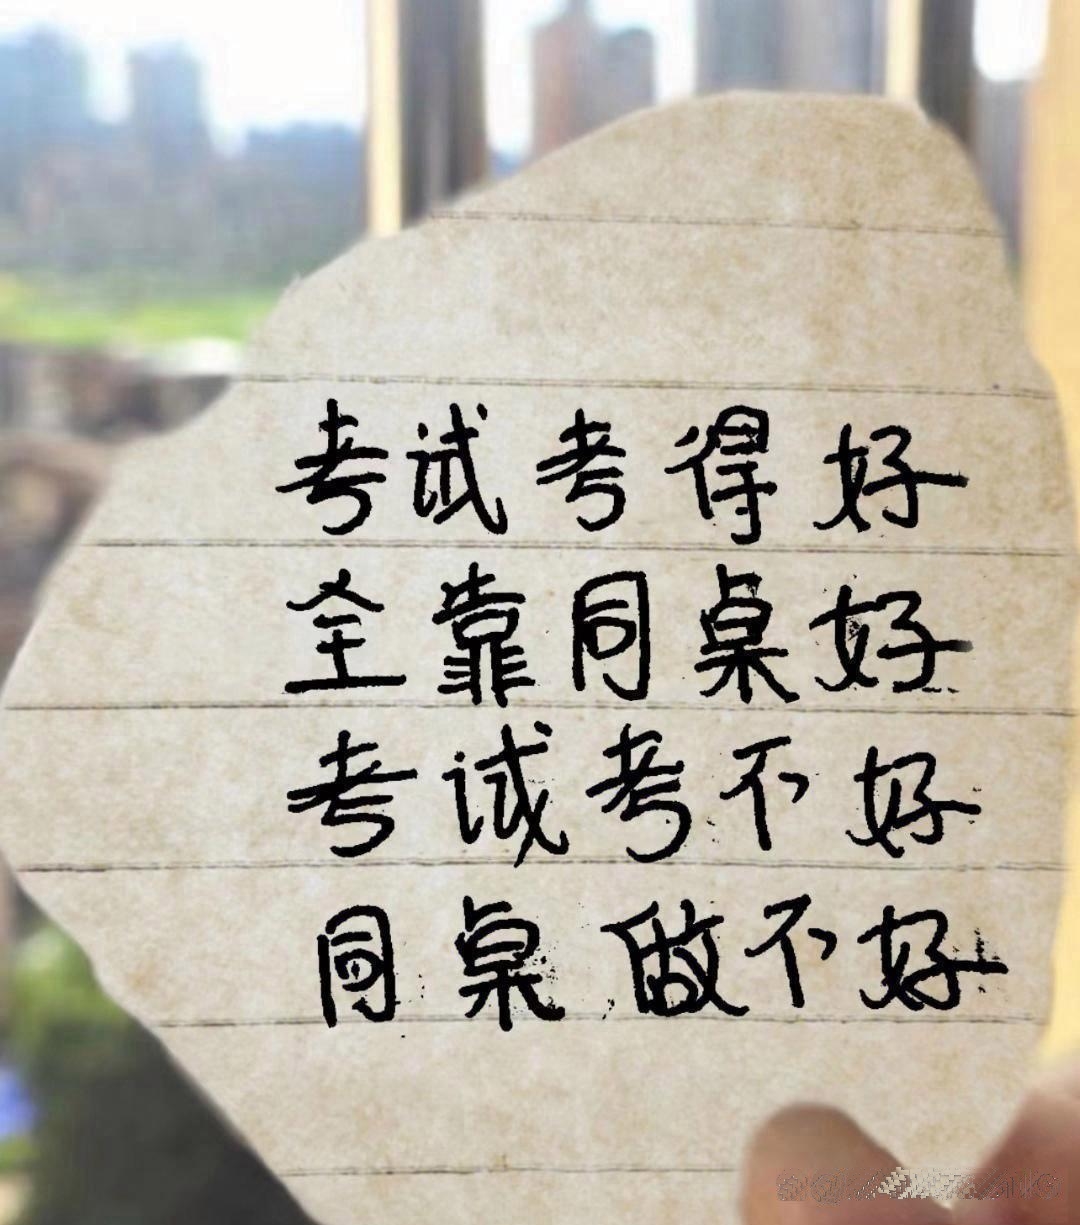 考试考得好
全靠同桌好
考试考不好
同桌做不好